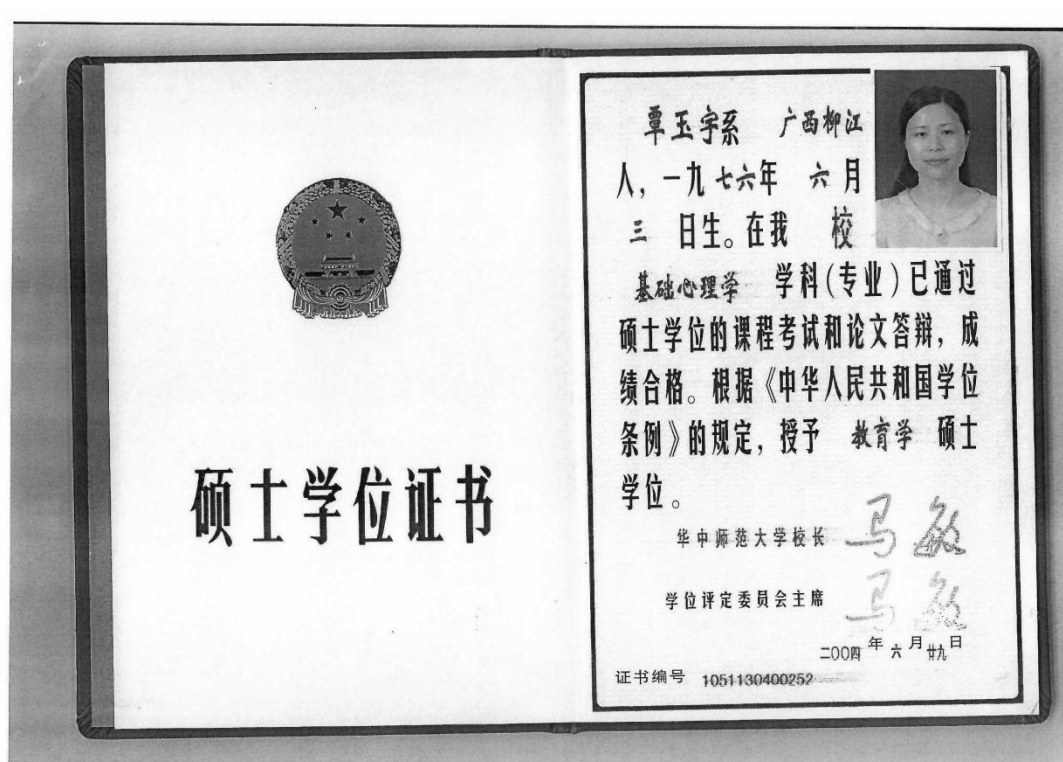 硕士学位证书
覃玉宇系 广西柳江
人，一九七六年 六月
三 日生。在我 校
基础心理学 学科(专业)已通过
硕士学位的课程考试和论文答辩，成
绩合格。根据《中华人民共和国学位
条例》的规定，授予 教育学 硕士
学位。
华中师范大学校长 马敏
学位评定委员会主席 马敏
二〇〇四年六月廿九日
证书编号 1051130400252